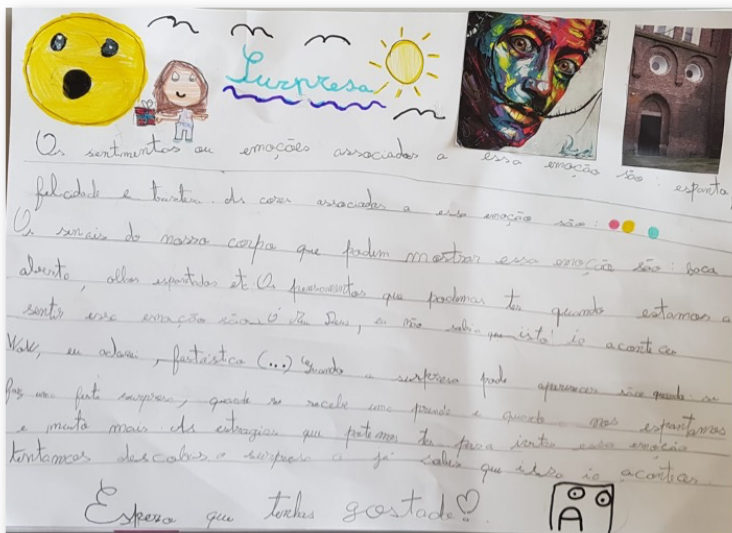 Surpresa
Os sentimentos ou emoções associados a essa emoção são: espanto,
felicidade e tristeza. As cores associadas a essa emoção são:
Os sinais do nosso corpo que podem mostrar essa emoção são: boca
aberta, olhos espantados etc. Os pensamentos que podemos ter quando estamos a
sentir essa emoção são: Ó Meu Deus, eu não sabia que isto ia acontecer
Wow, eu adorei, fantástico (...) Quando a surpresa pode aparecer são quando se
faz uma festa surpresa, quando se recebe uma prenda e quando nos espantamos
e muito mais. As estratégias que podemos ter para sentir essa emoção
tentamos descobrir a surpresa a já saber que isso ia acontecer.
Espero que tenhas gostado!